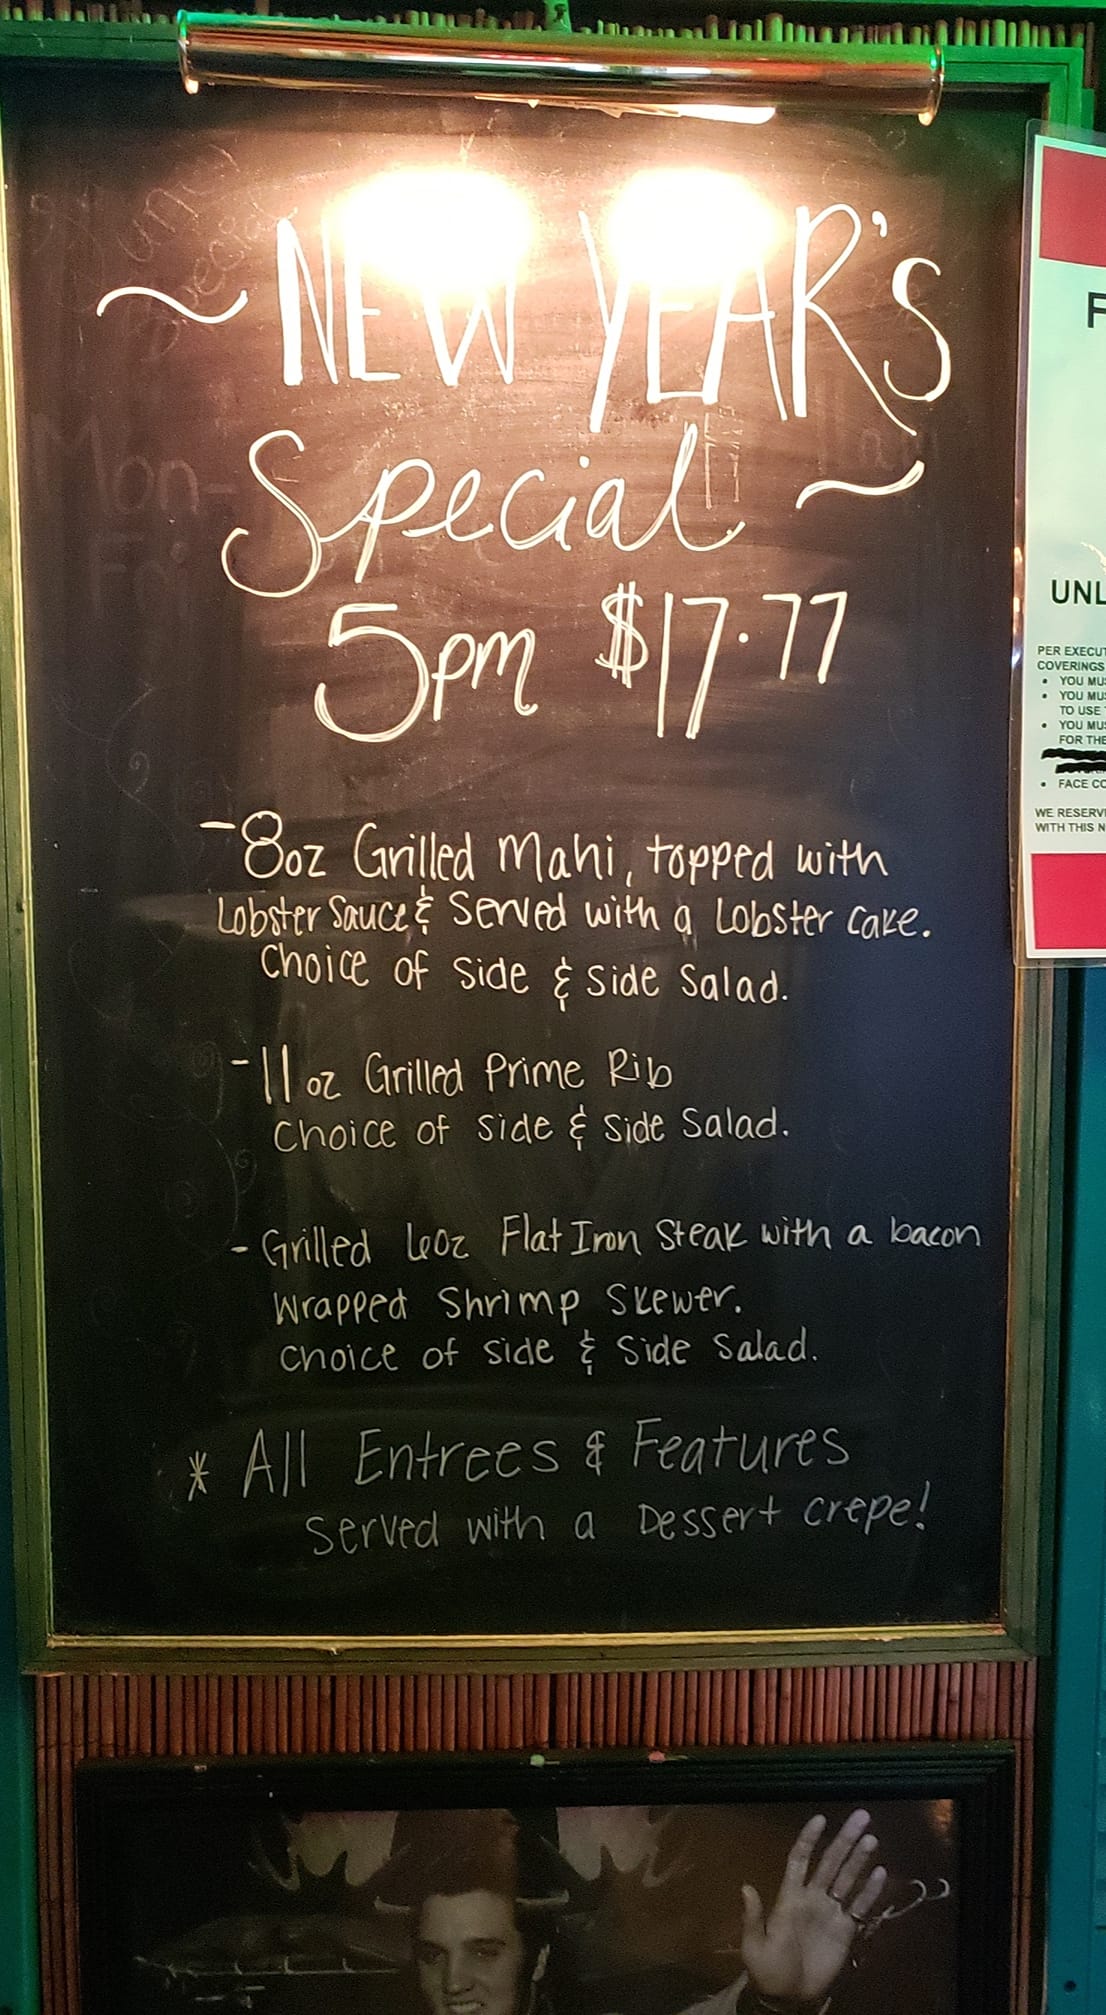 ~ NEW YEAR'S
Special ~
5pm $17.77
- 8oz Grilled Mahi, topped with
Lobster Sauce & Served with a Lobster Cake.
Choice of Side & Side Salad.
- 11oz Grilled Prime Rib
Choice of Side & Side Salad.
- Grilled 6oz Flat Iron Steak with a bacon
Wrapped Shrimp Skewer.
Choice of Side & Side Salad.
* All Entrees & Features
Served with a Dessert Crepe!
Mon-
Fri
F
UNL
PER EXECUT
COVERINGS
• YOU MUS
• YOU MUS
TO USE
• YOU MUS
FOR THE
• FACE CO
WE RESERV
WITH THIS N